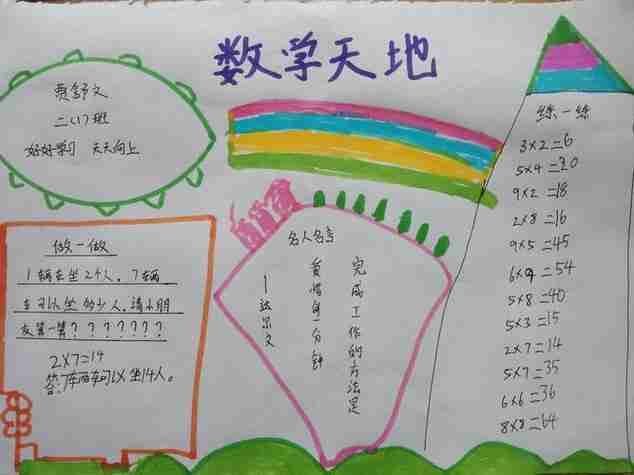 数学天地
贾舒文
二(1)班
好好学习 天天向上
做一做
1辆车坐2个人,7辆
车可以坐多少人,请小朋
友算一算???????
2×7=14
答:7车两车可以坐14人。
名人名言
完成工作的方法是
爱惜每一分钟
—达尔文
练一练
3×2=6
5×4=20
9×2=18
2×8=16
9×5=45
6×9=54
5×8=40
5×3=15
2×7=14
5×7=35
6×6=36
8×8=64